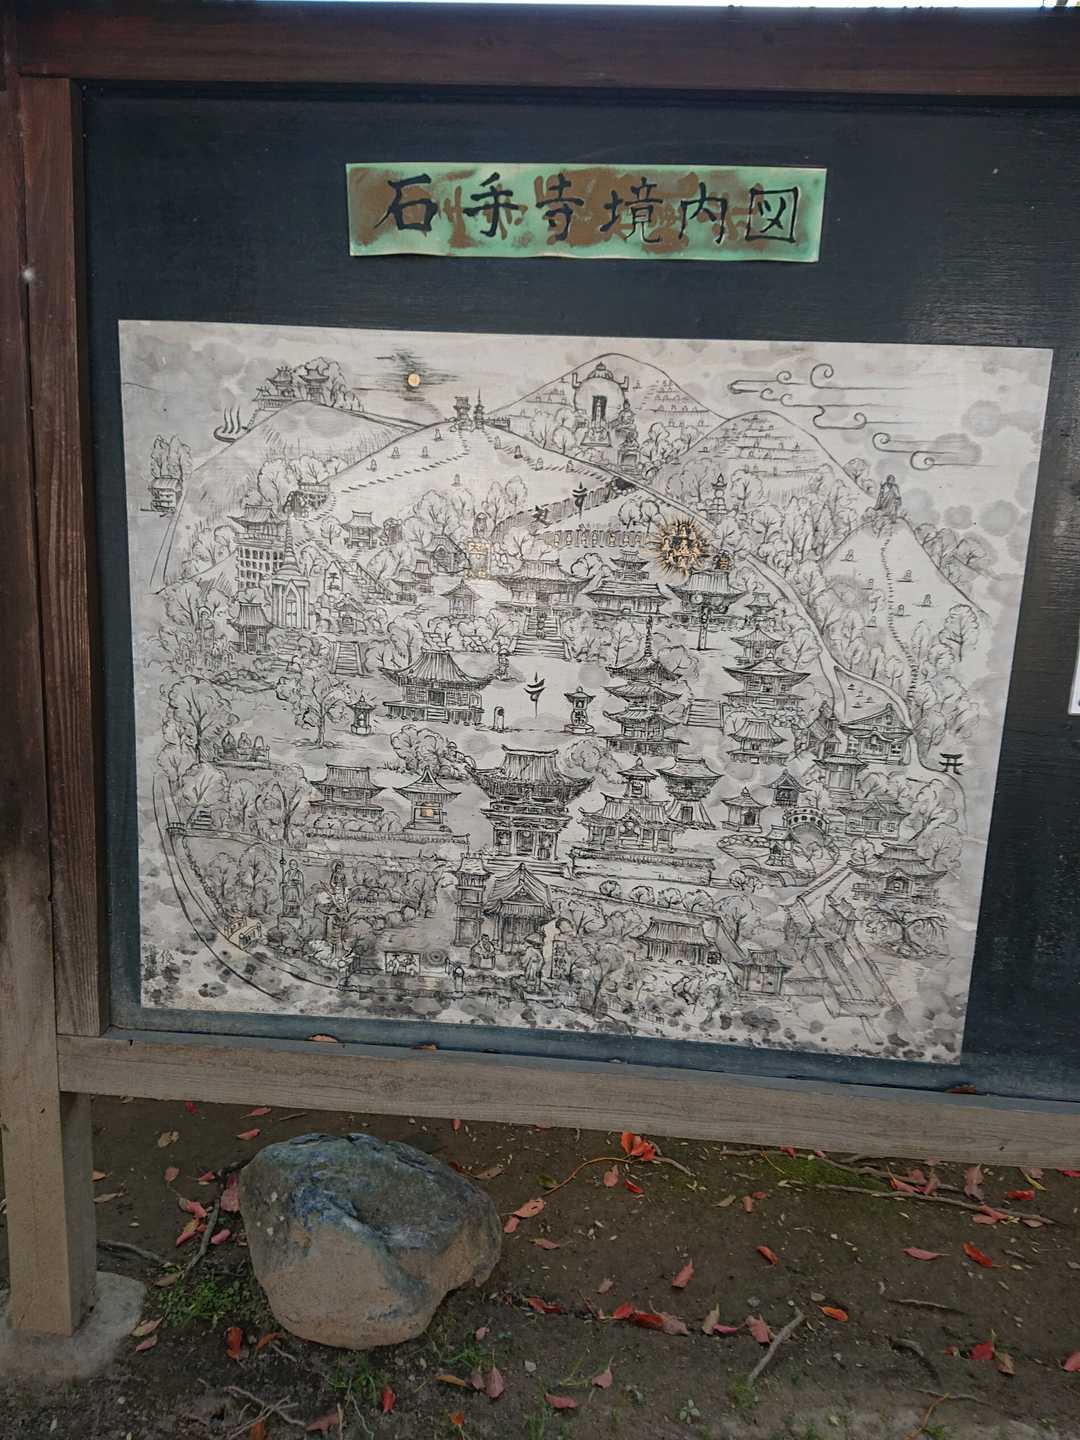 石手寺境内図